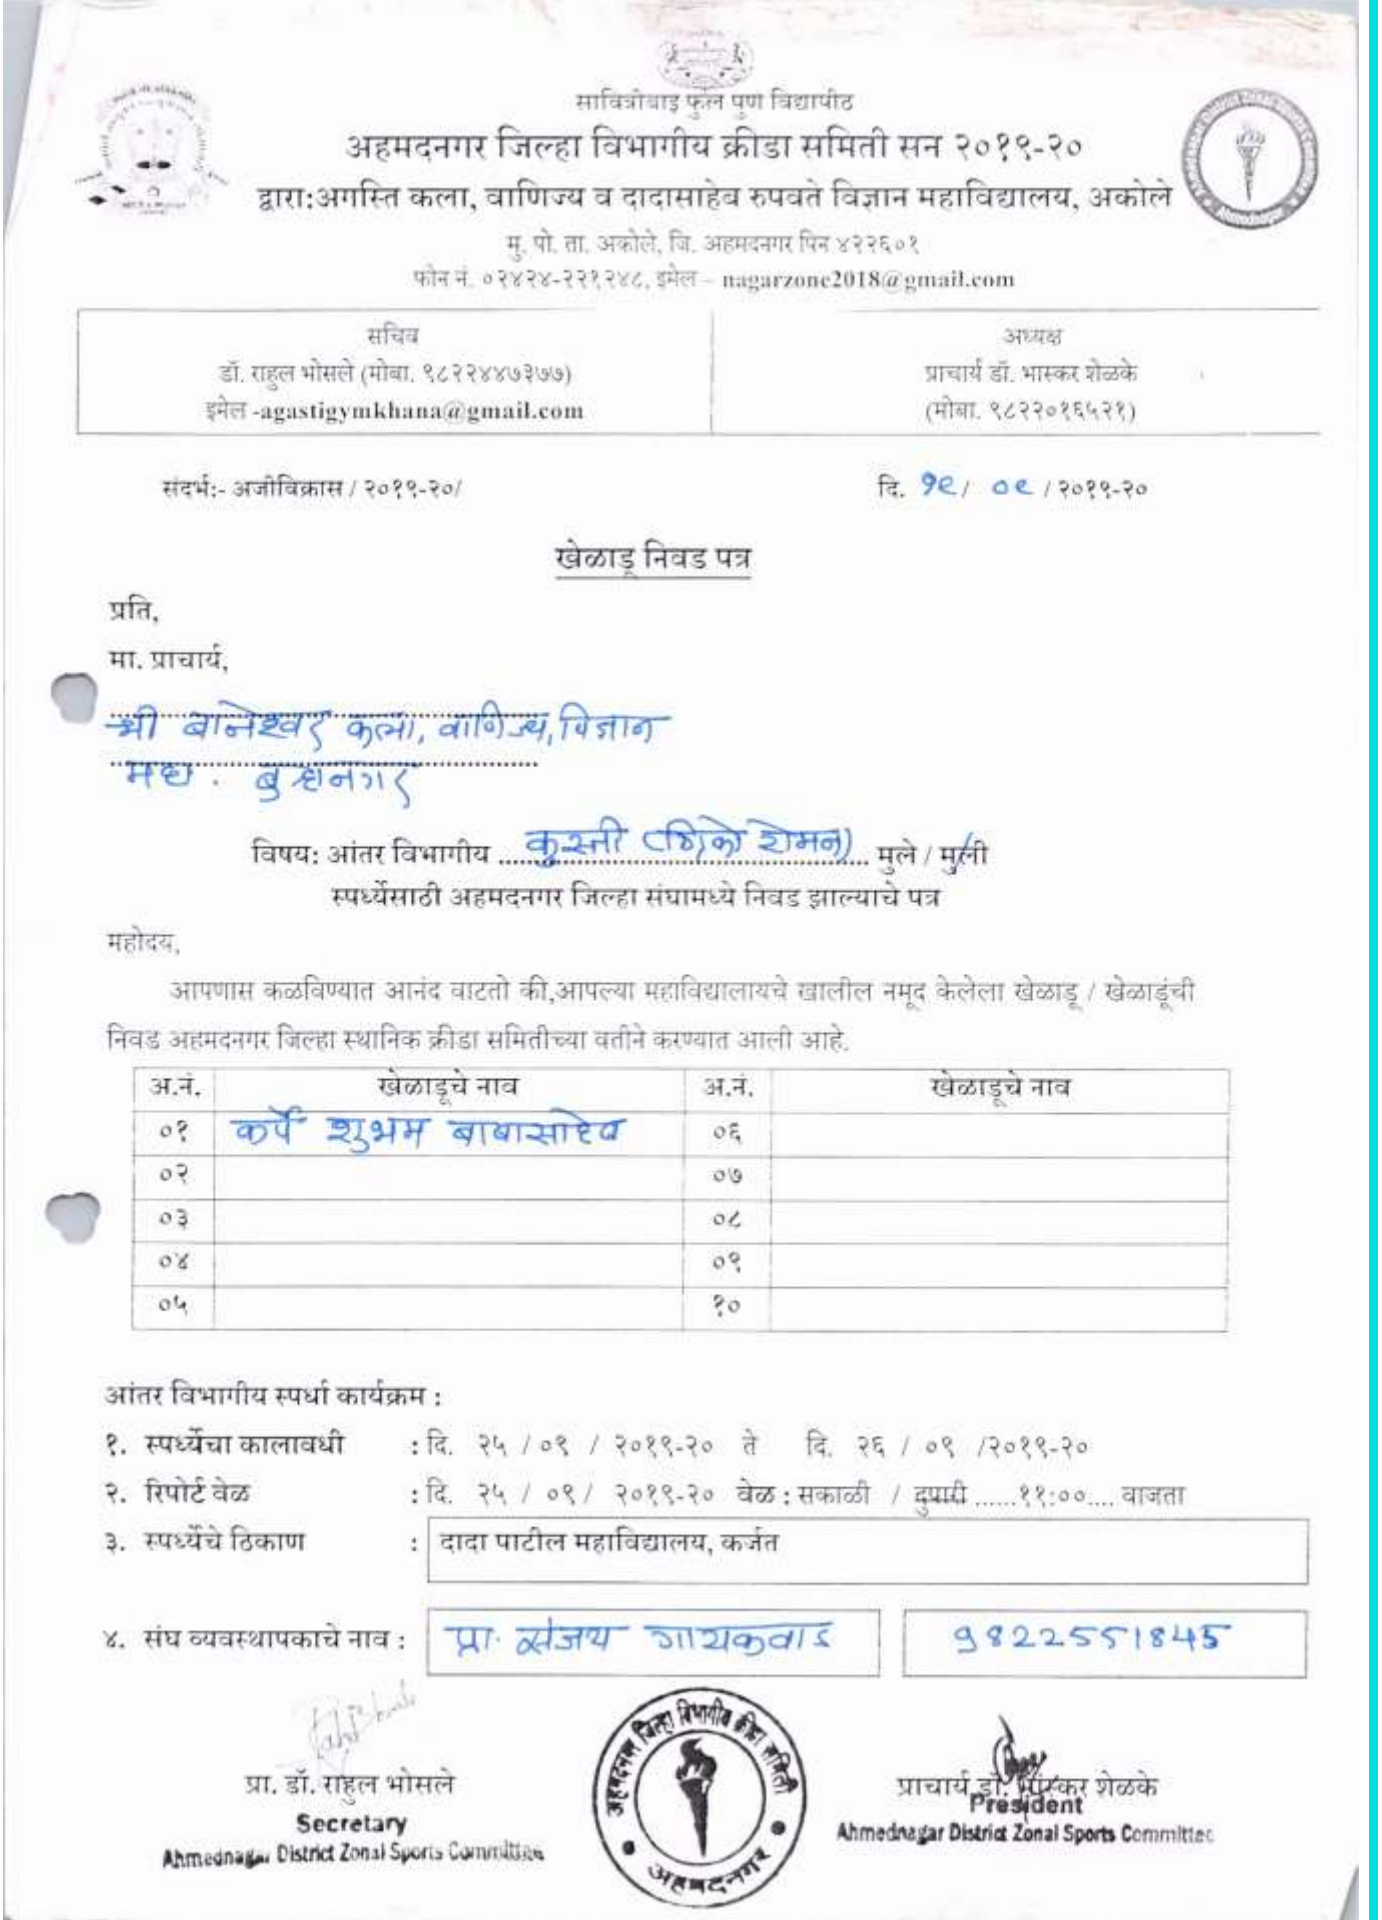 सावित्रीबाई फुले पुणे विद्यापीठ
अहमदनगर जिल्हा विभागीय क्रीडा समिती सन २०१९-२०
द्वारा:अगस्ति कला, वाणिज्य व दादासाहेब रुपवते विज्ञान महाविद्यालय, अकोले
मु. पो. ता. अकोले, जि. अहमदनगर पिन ४२२६०१
फोन नं. ०२४२४-२२१२४८, इमेल – nagarzone2018@gmail.com
Ahmednagar
सचिव
डॉ. राहुल भोसले (मोबा. ९८२२४४७३७७)
इमेल -agastigymkhana@gmail.com
अध्यक्ष
प्राचार्य डॉ. भास्कर शेळके
(मोबा. ९८२२०१६५२१)
संदर्भ:- अजीविक्रास / २०१९-२०/
दि. १९/ ०९ / २०१९-२०
खेळाडू निवड पत्र
प्रति,
मा. प्राचार्य,
श्री बानेश्वर कला, वाणिज्य, विज्ञान
महा. बुऱ्हानगर
विषय: आंतर विभागीय कुस्ती (ग्रिको रोमन) मुले / मुली
स्पर्ध्येसाठी अहमदनगर जिल्हा संघामध्ये निवड झाल्याचे पत्र
महोदय,
आपणास कळविण्यात आनंद वाटतो की,आपल्या महाविद्यालायचे खालील नमूद केलेला खेळाडू / खेळाडूंची
निवड अहमदनगर जिल्हा स्थानिक क्रीडा समितीच्या वतीने करण्यात आली आहे.
अ.नं. खेळाडूचे नाव अ.नं. खेळाडूचे नाव
०१ कर्पे शुभम बाबासाहेब ०६
०२ ०७
०३ ०८
०४ ०९
०५ १०
आंतर विभागीय स्पर्धा कार्यक्रम :
१. स्पर्ध्येचा कालावधी : दि. २५ / ०९ / २०१९-२० ते दि. २६ / ०९ /२०१९-२०
२. रिपोर्ट वेळ : दि. २५ / ०९/ २०१९-२० वेळ : सकाळी / दुपारी ......११:००.... वाजता
३. स्पर्ध्येचे ठिकाण : दादा पाटील महाविद्यालय, कर्जत
४. संघ व्यवस्थापकाचे नाव : प्रा. संजय गायकवाड 9822551845
अहमदनगर जिल्हा विभागीय क्रीडा समिती
अहमदनगर
प्रा. डॉ. राहुल भोसले
Secretary
Ahmednagar District Zonal Sports Committee
प्राचार्य डॉ. भास्कर शेळके
President
Ahmednagar District Zonal Sports Committee